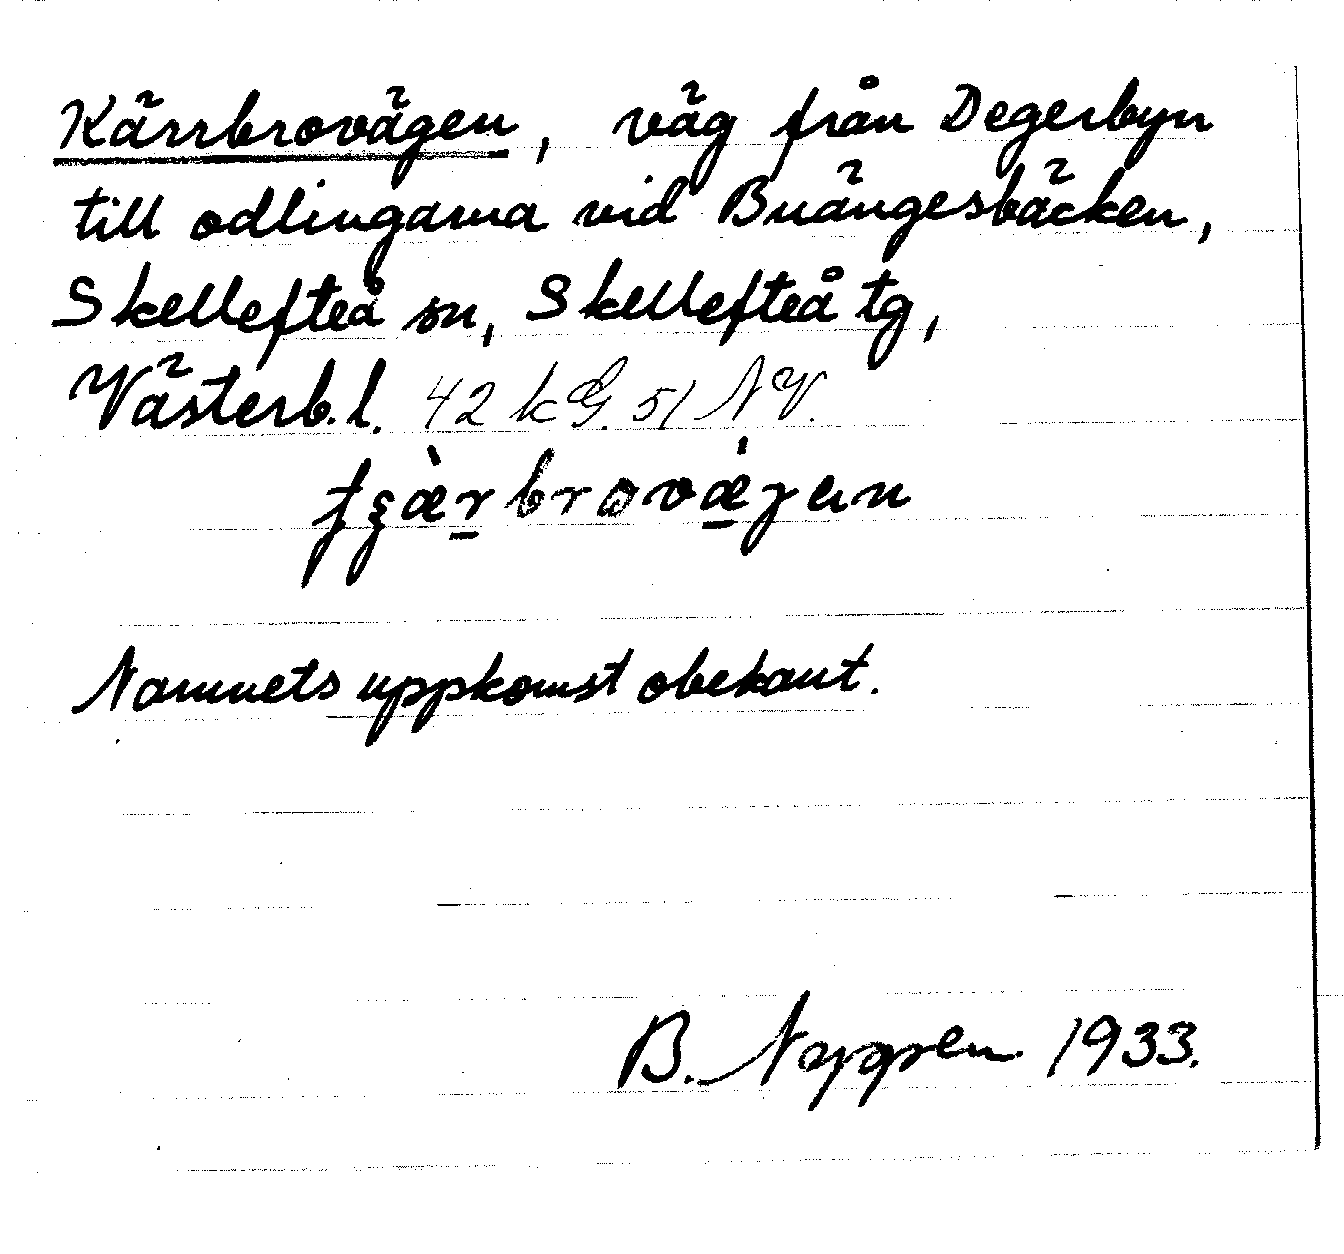 Kärrbrovägen, väg från Degerbyn
till odlingarna vid Buängesbäcken,
Skellefteå sn, Skellefteå tg,
Västerb.l. 42 k G. 51 NV.
Namnets uppkomst obekant.
B. 1933.